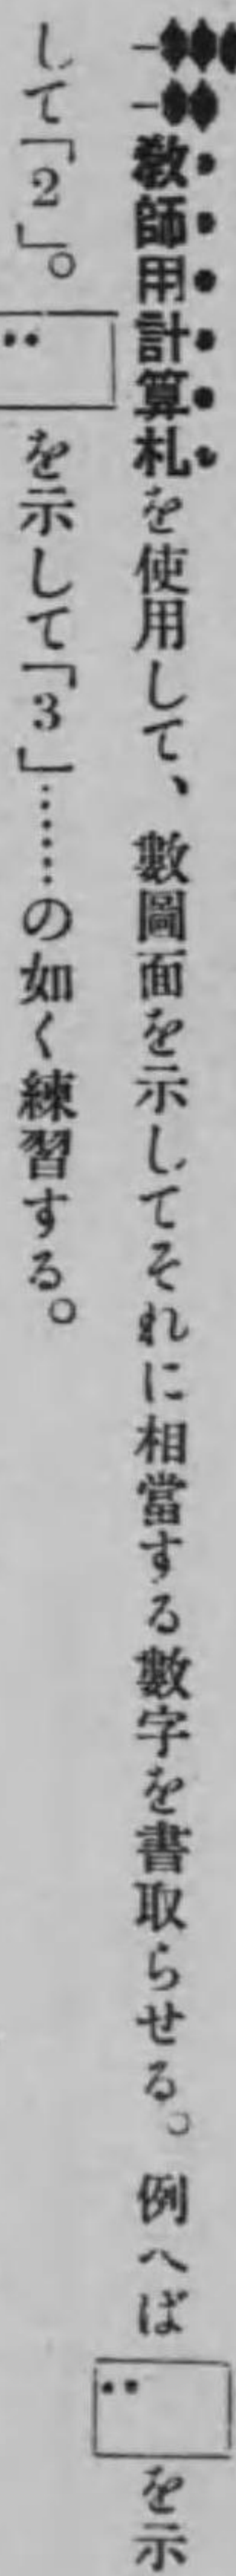 敎師用計算札を使用して、數圖面を示してそれに相當する數字を書取らせる。例へば を示
して「2」。 を示して「3」……の如く練習する。